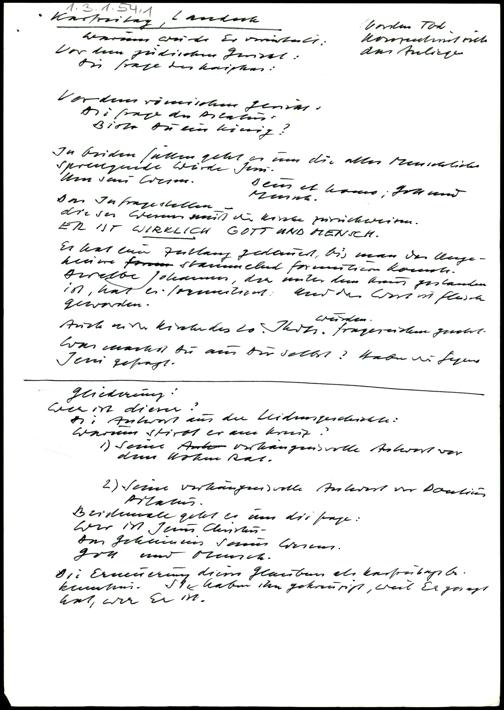 1.3.1.54.1
Karfreitag, Landeck
Warum wurde Er verurteilt:
Vor dem Tod
konzentriert sich
das Anliegen
Vor dem jüdischen Gericht:
Die Frage des Kaiphas:
Vor dem römischen Gericht.
Die Frage des Pilatus.
Bist Du ein König?
In beiden Fällen geht es um die alles Menschliche
sprengende Würde Jesu.
Um sein Wesen.
Deus et homo; Gott und
Mensch.
Das Infragestellen
dieses Wesens muß die Kirche zurückweisen.
ER IST WIRKLICH GOTT UND MENSCH.
Es hat eine Zeitlang gedauert, bis man das Unge-
heure stammelnd formulieren konnte.
Derselbe Johannes, der unter dem Kreuz gestanden
ist, hat es formuliert: Und das Wort ist Fleisch
geworden.
Auch in der Kirche des 20. Jhdts. würden Fragezeichen gesetzt.
Was machst Du aus Dir selbst? haben die Gegner
Jesu gefragt.
Gliederung:
Wer ist dieser?
Die Antwort aus der Leidensgeschichte:
Warum stirbt er am Kreuz?
1) Seine verhängnisvolle Antwort vor
dem Hohen Rat.
2) Seine verhängnisvolle Antwort vor Pontius
Pilatus.
Beidemale geht es um die Frage:
Wer ist Jesus Christus.
Das Geheimnis Seines Wesens.
Gott und Mensch.
Die Erneuerung dieses Glaubens als Karfreitagsbe-
kenntnis. Sie haben ihn gekreuzigt, weil Er gesagt
hat, wer Er ist.